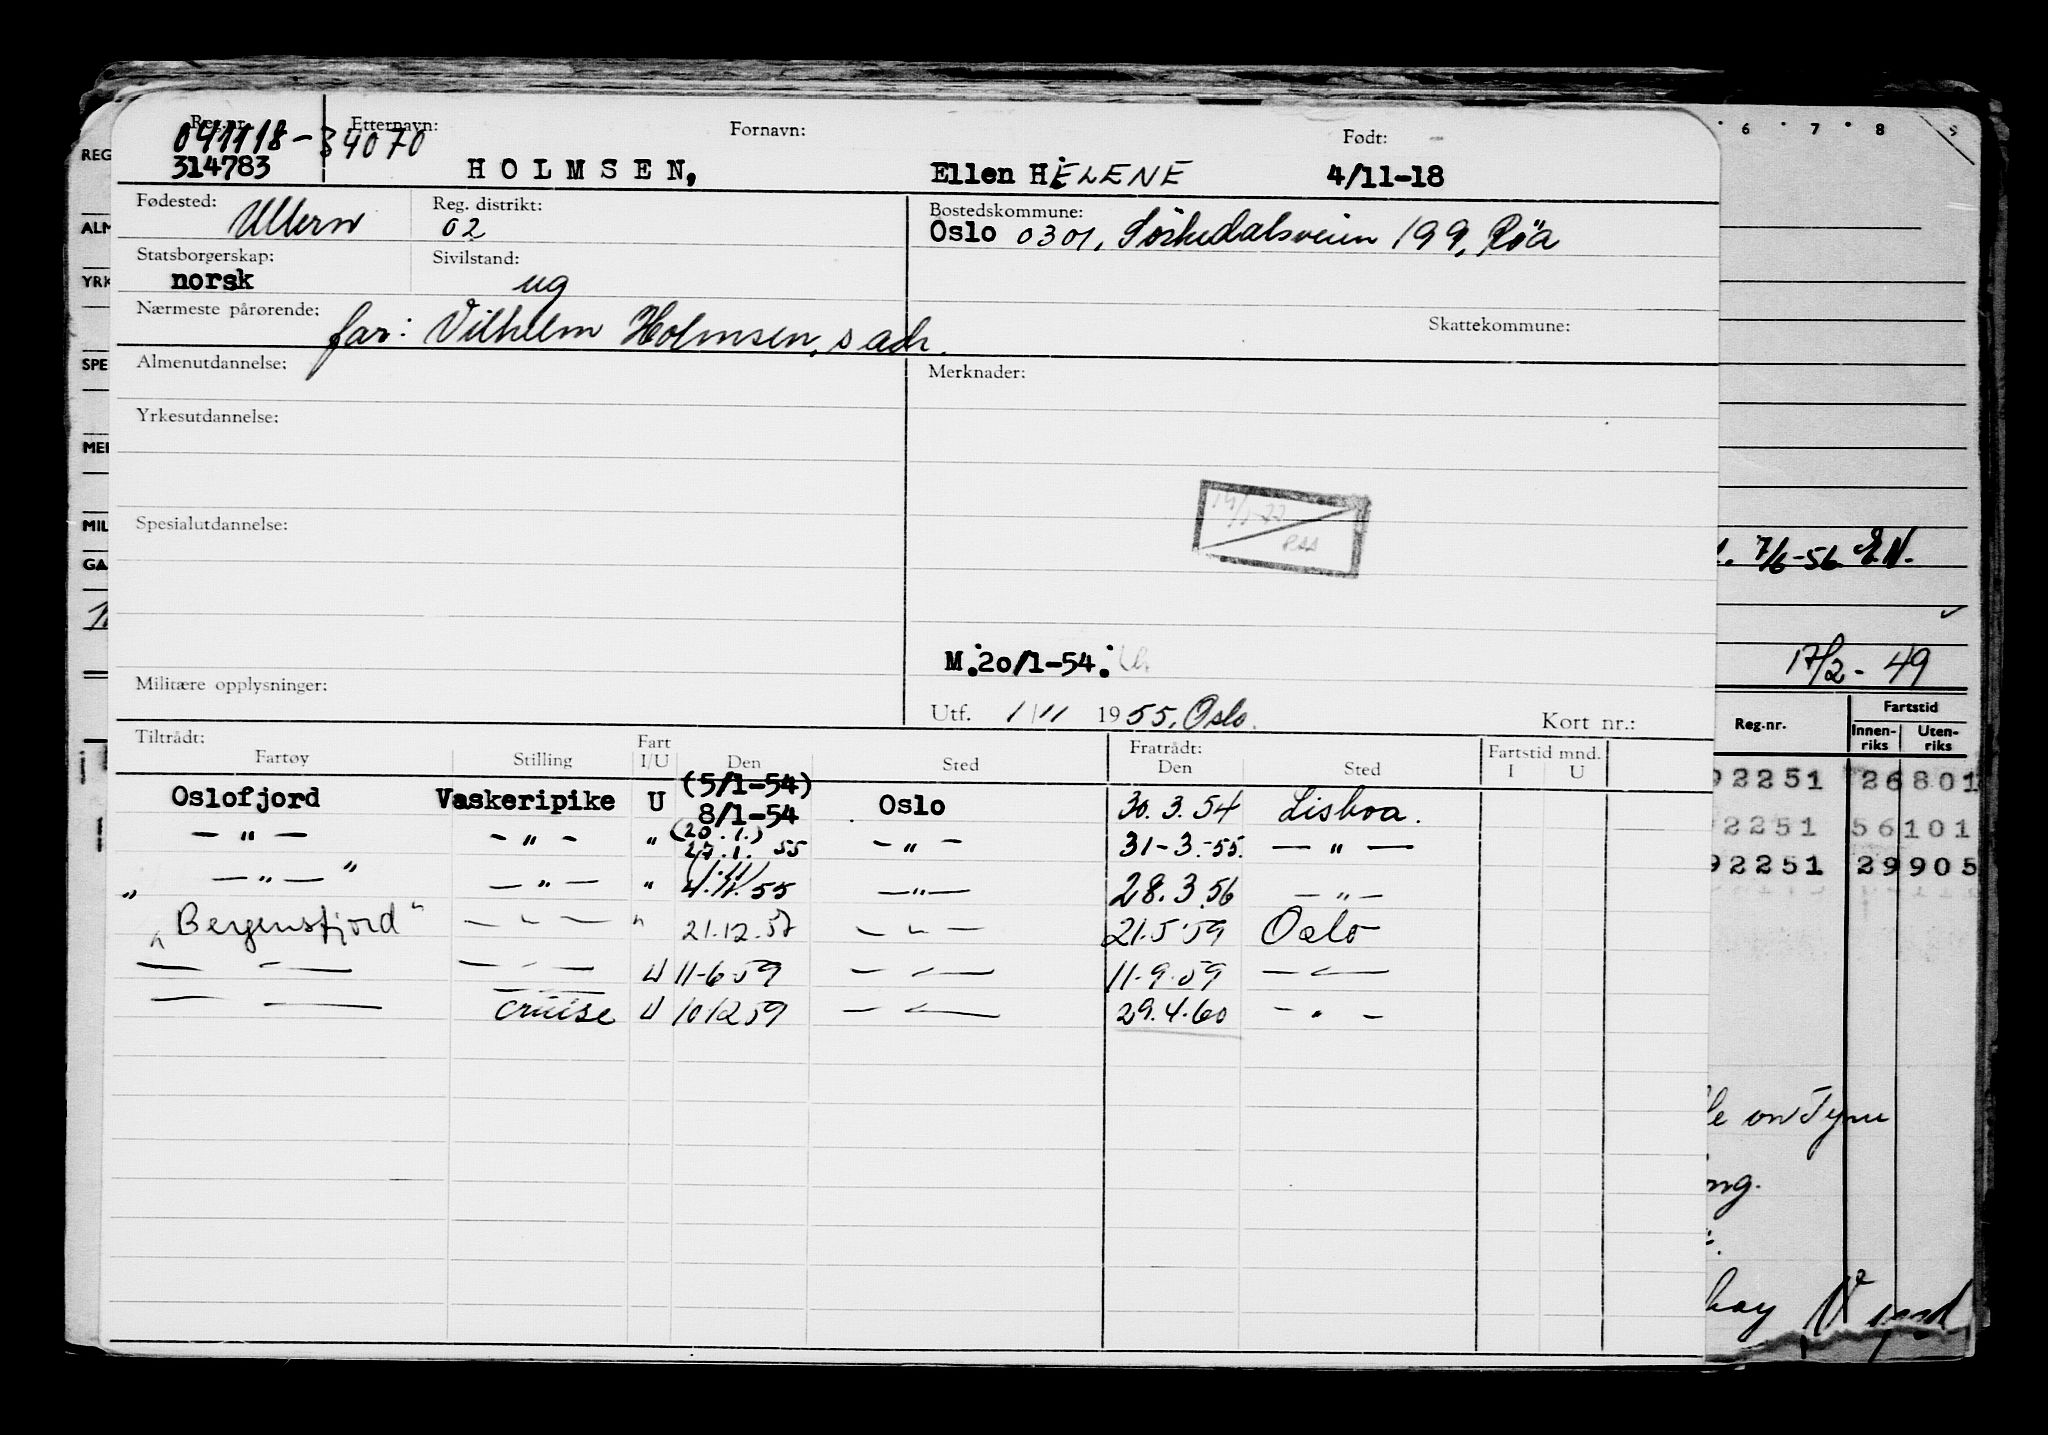 Reg.nr. Etternavn: Fornavn: Født:
041118-34070
314783 HOLMSEN, Ellen HELENE 4/11-18
Fødested: Ullern Reg. distrikt: 02 Bostedskommune: Oslo 0301, Sörkedalsveien 199, Röa
Statsborgerskap: norsk Sivilstand: ug
Nærmeste pårørende: far: Vilhelm Holmsen, s adr. Skattekommune:
Almenutdannelse: Merknader:
Yrkesutdannelse:
Spesialutdannelse:
M.20/1-54.
Militære opplysninger:
Utf. 1/11 1955, Oslo. Kort nr.:
Tiltrådt: Fratrådt: Fartstid mnd.
Fartøy Stilling Fart I/U Den Sted Den Sted I U
Oslofjord Vaskeripike U (5/1-54) 8/1-54 Oslo 30.3.54 Lisboa.
— " — — " — " (20.1.) 27.1. 55 — " — 31-3.-55. — " —
" — " — " — " — " (1.11) 4.11.55 — " — 28.3.56 — " —
"Bergensfjord" — " — " 21.12.57 — " — 21.5.59 Oslo
— " — — " — U 11-6.59 — " — 11.9.59 — " —
— " — cruise U 10.12.59 — " — 29.4.60 — " —
REG
ALM
YRK
SPE
MIL
GA
6 7 8 9
7/6-56 E.N.
17/2-49
Reg-nr. Fartstid
Innen-riks Uten-riks
92251 26801
2251 56101
92251 29905
on Tyne